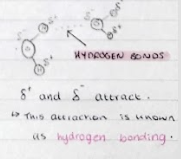 δ⁺
δ⁻
δ⁺
HYDROGEN BONDS
δ⁺ and δ⁻ attract.
↳ This attraction is known
as hydrogen bonding.